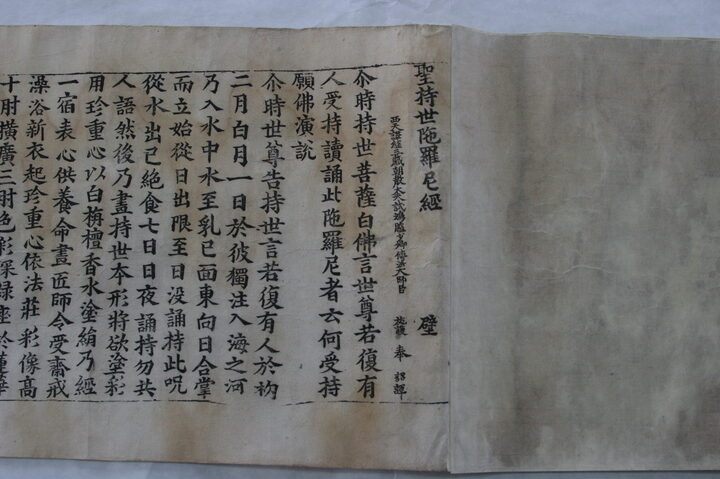 聖持世陁羅尼經 璧
西天譯經三藏朝散大夫試鴻臚少卿傳法大師臣 施護 奉 詔譯
尒時持世菩薩白佛言世尊若復有
人受持讀誦此陁羅尼者云何受持
願佛演說
尒時世尊告持世言若復有人於初
二月白月一日於彼獨注入海之河
乃入水中水至乳已面東向日合掌
而立始從日出限至日没誦持此呪
從水出已絶食七日日夜誦持勿共
人語然後乃畫持世本形將欲塗彩
用珍重心以白栴檀香水塗絹乃經
一宿表心供養命畫匠師令受齋戒
澡浴新衣起珍重心依法莊彩像高
十肘横廣三肘色彩深緑座於蓮華